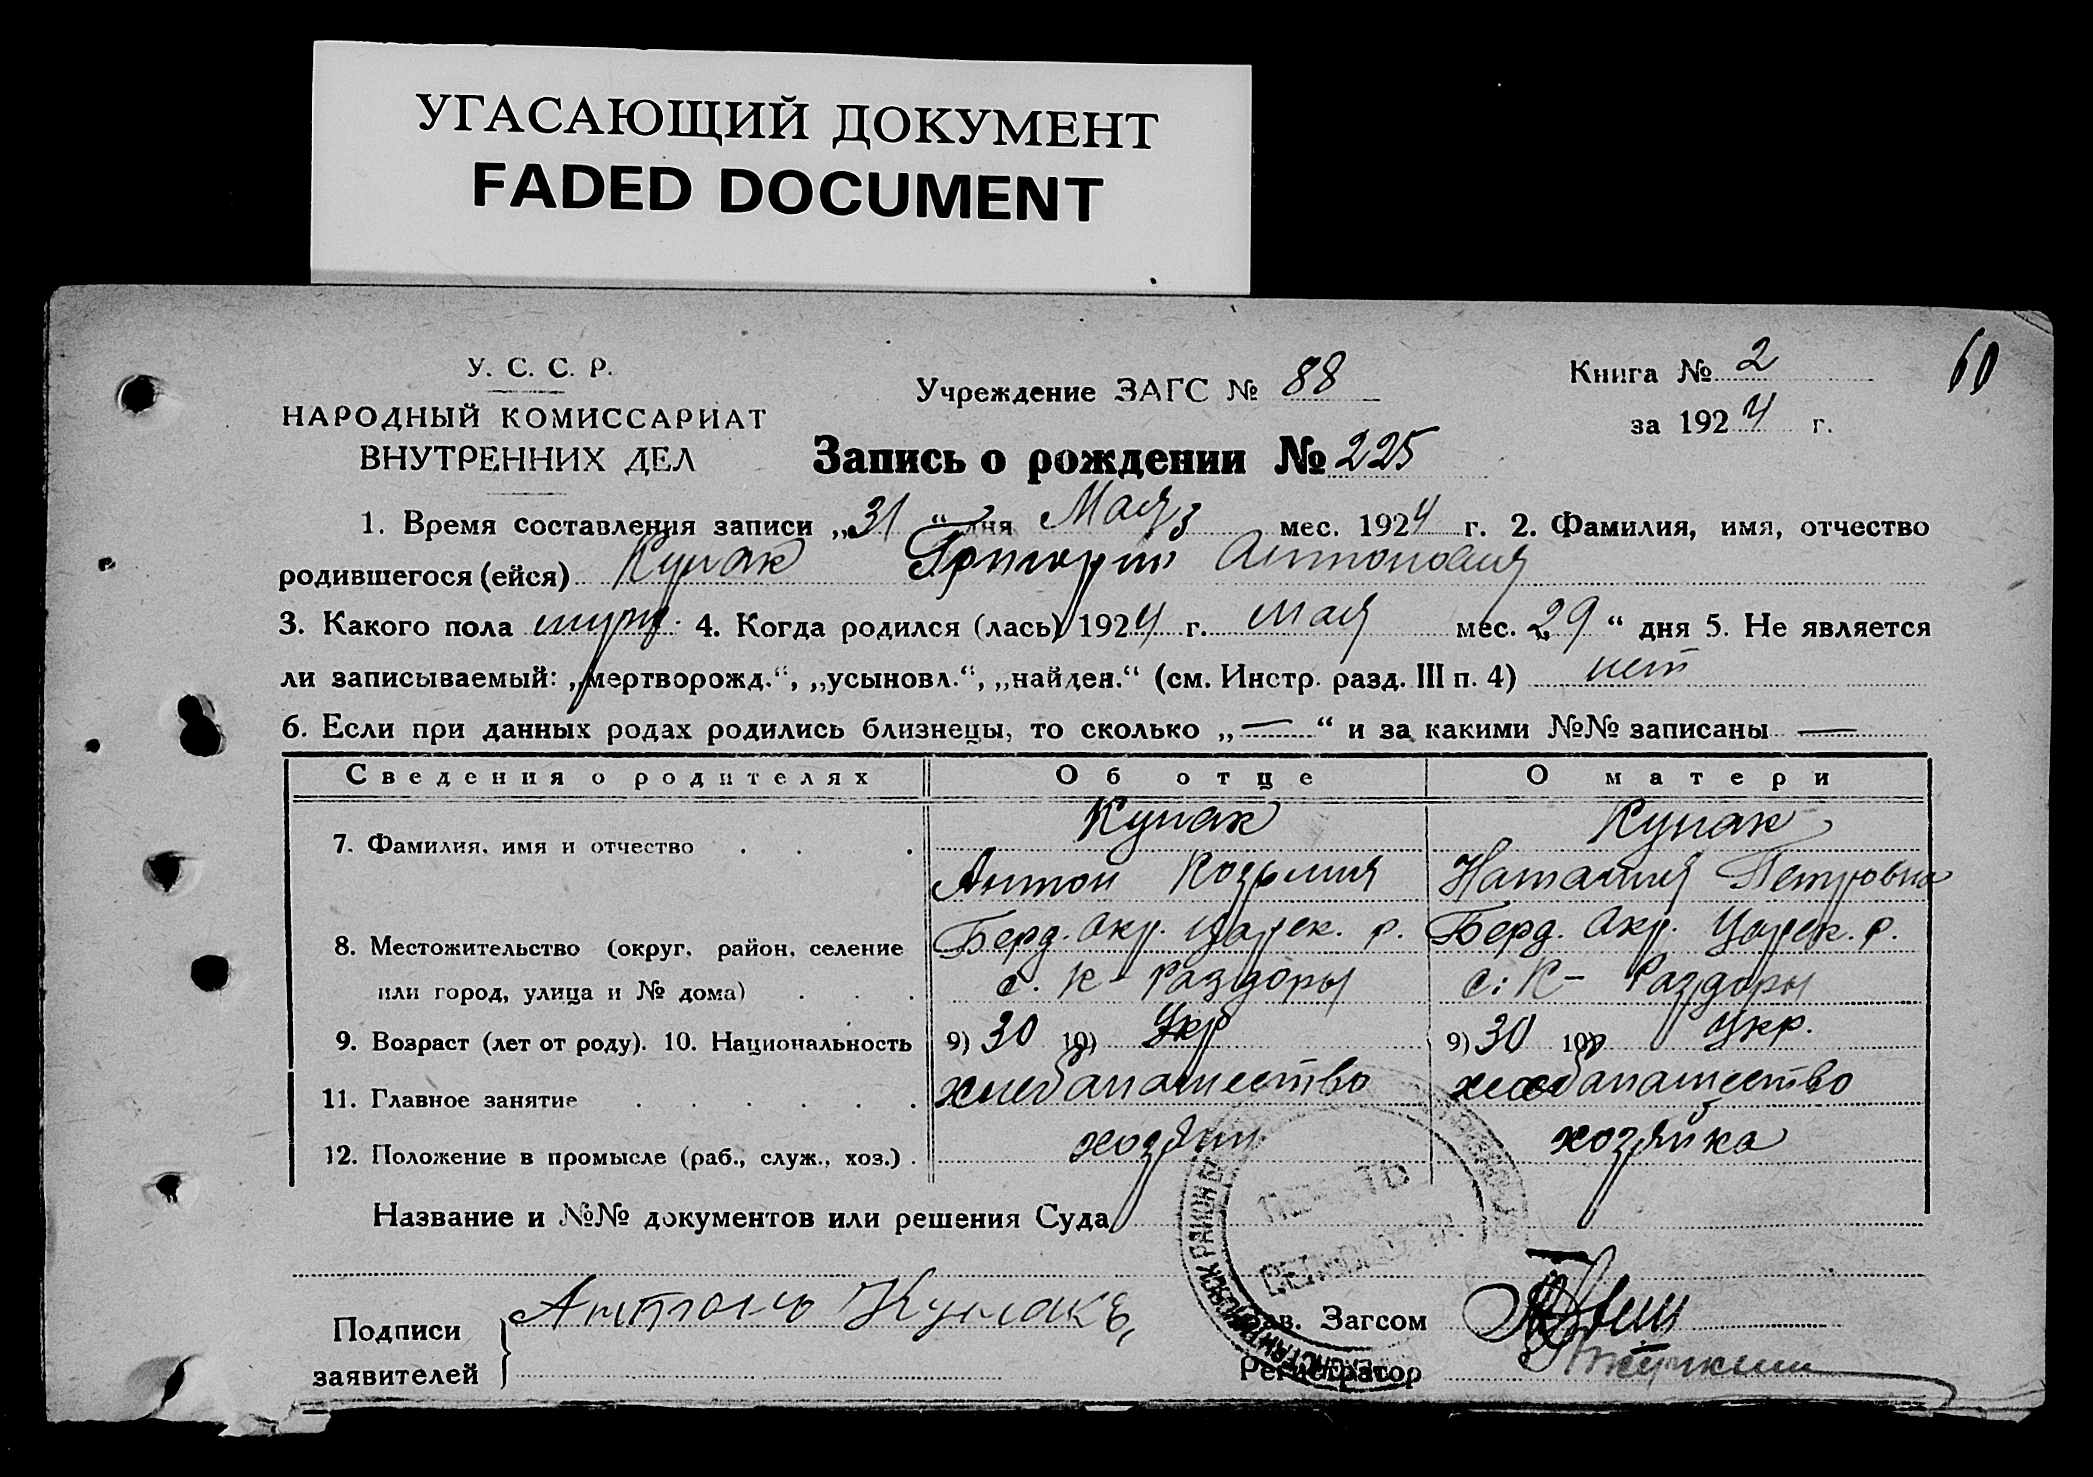 УГАСАЮЩИЙ ДОКУМЕНТ
FADED DOCUMENT
60
У. С. С. Р.
НАРОДНЫЙ КОМИССАРИАТ
ВНУТРЕННИХ ДЕЛ
Учреждение ЗАГС № 88
Книга № 2
за 1924 г.
Запись о рождении № 225
1. Время составления записи „31 “ дня Мая мес. 1924 г. 2. Фамилия, имя, отчество
родившегося (ейся) Кулак Григорий Антонович
3. Какого пола муж. 4. Когда родился (лась) 1924 г. Мая мес. „29 “ дня 5. Не является
ли записываемый: „мертворожд.“, „усыновл.“, „найден.“ (см. Инстр. разд. III п. 4) нет
6. Если при данных родах родились близнецы, то сколько „—“ и за какими №№ записаны —
Сведения о родителях Об отце О матери
7. Фамилия, имя и отчество Кулак Кулак
Антон Наталия Петровна
8. Местожительство (округ, район, селение Берд. Окр. Царек. р. Берд. Окр. Царек. р.
или город, улица и № дома) с. К-Раздоры с. К-Раздоры
9. Возраст (лет от роду). 10. Национальность 9) 30 10) Укр 9) 30 10) Укр.
11. Главное занятие хлебапашество хлебапашество
12. Положение в промысле (раб., служ., хоз.) хозяин хозяйка
Название и №№ документов или решения Суда
Подписи
заявителей
Антонъ Кулакъ
Зав. Загсом
Регистратор